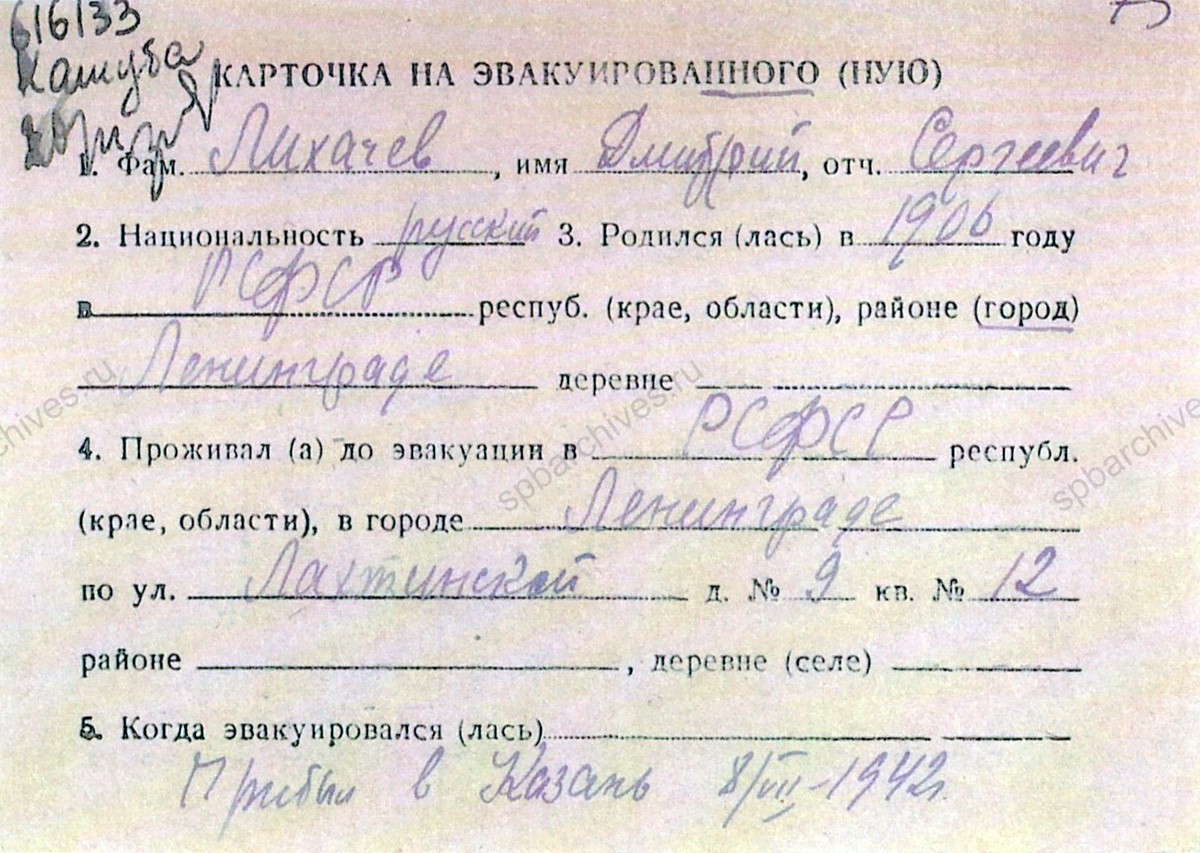 616133
КАРТОЧКА НА ЭВАКУИРОВАННОГО (НУЮ)
1. Фам. Лихачев, имя Дмитрий, отч. Сергеевич
2. Национальность русский 3. Родился (лась) в 1906 году
в РСФСР респуб. (крае, области), районе (город)
Ленинграде деревне —
4. Проживал (а) до эвакуации в РСФСР республ.
(крае, области), в городе Ленинграде
по ул. Лахтинской д. № 9 кв. № 12
районе , деревне (селе)
5. Когда эвакуировался (лась)
Прибыл в Казань 8/VII-1942г.
spbarchives.ru
spbarchives.ru
spbarchives.ru